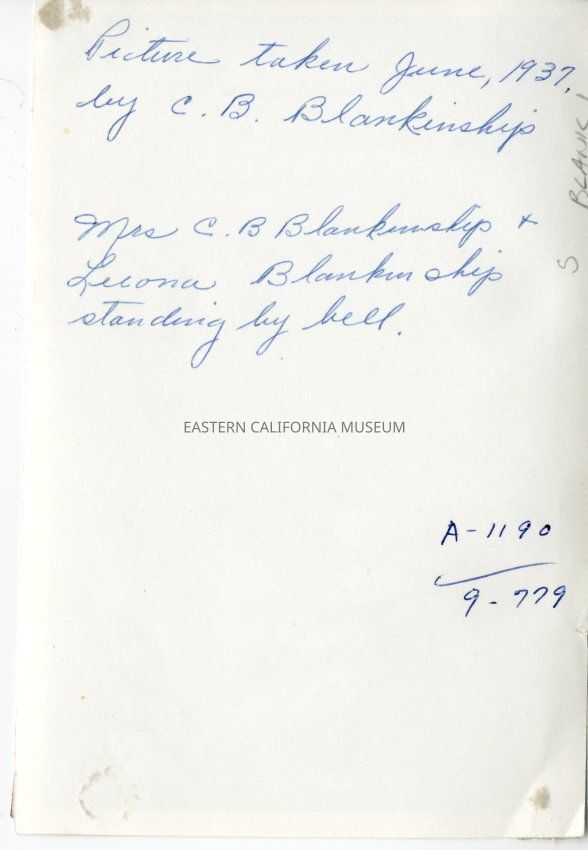 Picture taken June, 1937.
by C. B. Blankinship
Mrs C. B Blankinship +
Leeona Blankinship
standing by bell.
EASTERN CALIFORNIA MUSEUM
A-1190
9-779